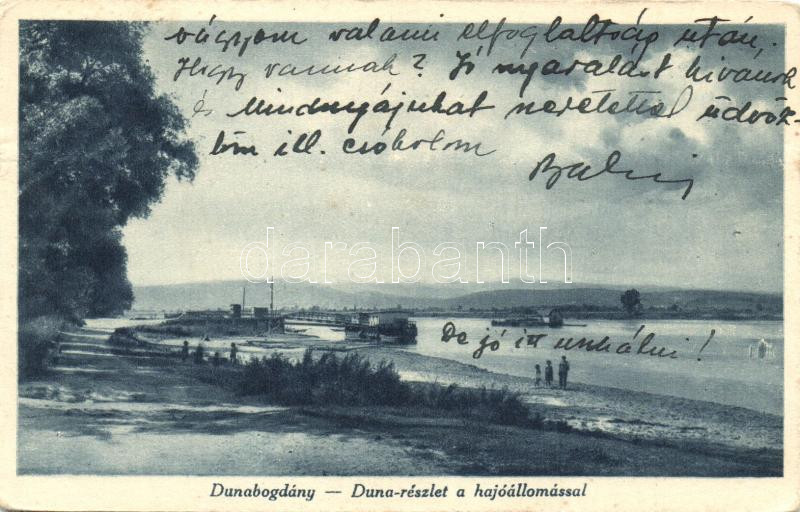 vágyom valami elfoglaltság után.
Hogy vannak? Jó nyaralást kívánok
és Mindnyájukat szeretettel üdvöz-
löm ill. csókolom
De jó itt unkálni!
darabanth
Dunabogdány — Duna-részlet a hajóállomással